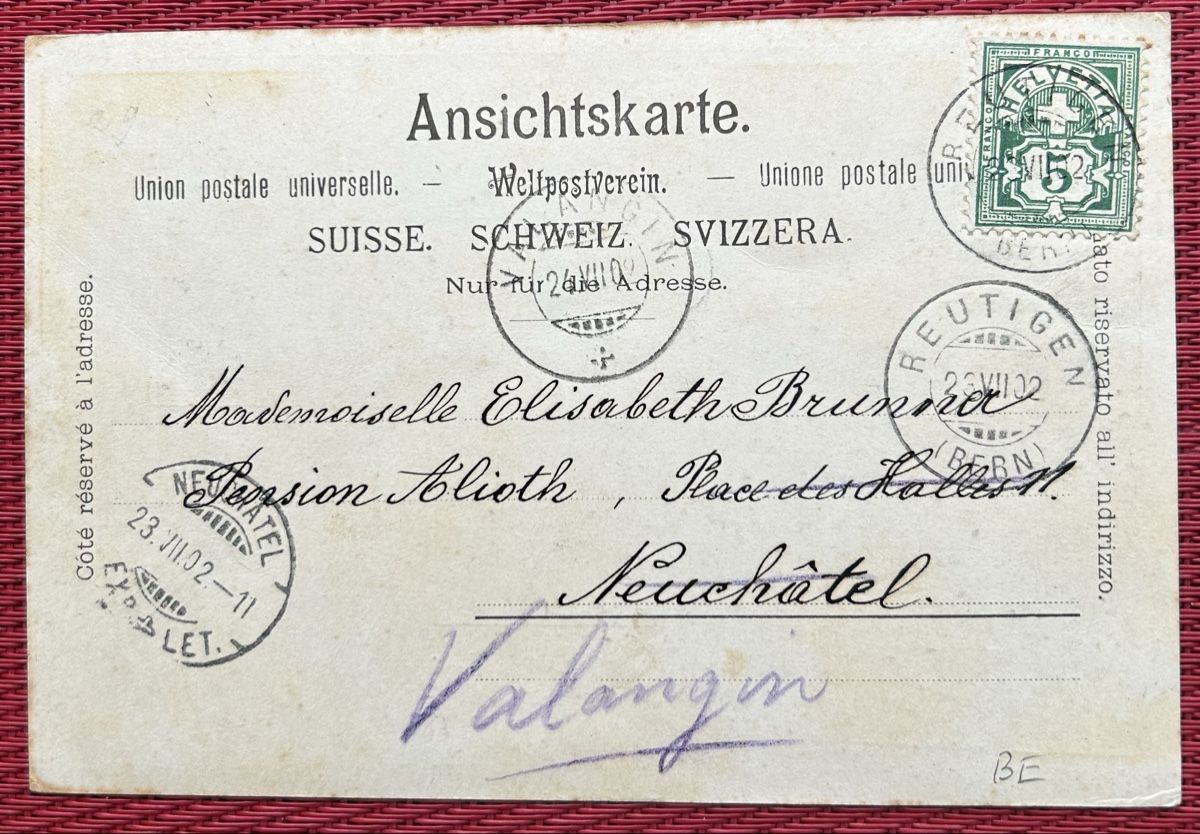 Ansichtskarte.
Union postale universelle. — Weltpostverein. — Unione postale uni
SUISSE. SCHWEIZ. SVIZZERA.
Nur für die Adresse.
Côté réservé à l'adresse.
riservato all' indirizzo.
FRANCO
FRANCO
HELVETIA
FRANCO
5
VII.02
BERN
VALANGIN
24.VII.02
REUTIGEN
23.VII.02
(BERN)
Mademoiselle Elisabeth Brunner
Pension Alioth, Place des Halles 11.
Neuchâtel.
NEUCHÂTEL
23.VII.02.–11
EXP. LET.
Valangin
BE